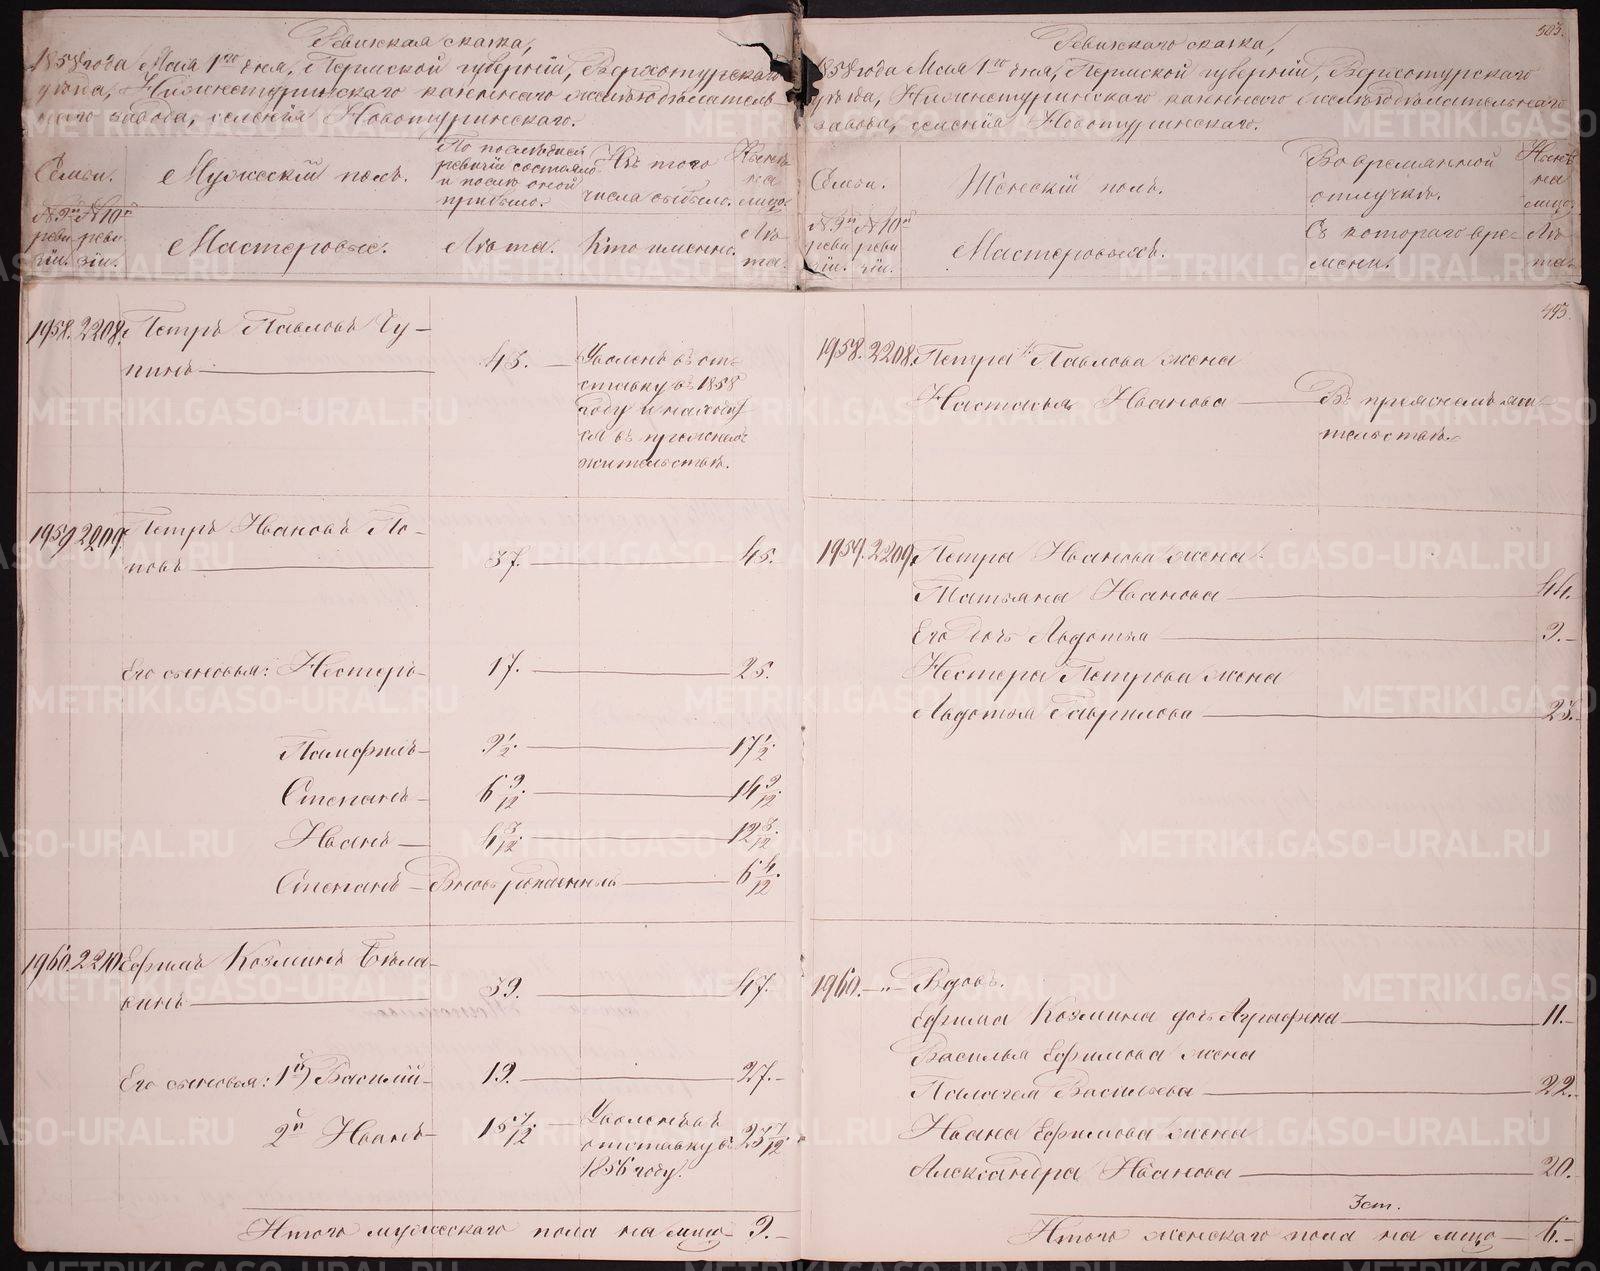 Ревизская сказка,
1858 года Мая 1го дня, Пермской губернiи, Верхотурскаго
уѣзда, Нижнетуринскаго казеннаго желѣзодѣлатель-
наго завода, селенiя Новотуринскаго.
Семьи.
Мужескiй полъ.
По послѣдней
ревизiи состояло
и послѣ оной
прибыло.
Изъ того
числа выбыло.
Нынѣ
на
лицо
№ 9й
реви
зiи.
№ 10й
реви
зiи.
Мастеровые.
Лѣта.
Кто именно.
Лѣ-
та.
1958. 2208. Петръ Павловъ Чу-
пинъ 45. Уволенъ въ от-
ставку въ 1858
году и находит
ся въ прежнемъ
жительствѣ.
1959 2209 Петръ Ивановъ По-
повъ 37. 45.
Его сыновья: Несторъ 17. 25.
Памфилъ 9 1/2. 17 1/2.
Степанъ 6 9/12. 14 9/12.
Иванъ 4 8/12. 12 8/12.
Степанъ Вновь рожденный 6 4/12.
1960. 2210 Ефимъ Козминъ Бѣла-
кинъ 39. 47.
Его сыновья: 1й) Василiй 19. 27.
2й Иванъ 15 7/12. Уволенъ въ
отставку въ 23 7/12.
1856 году.
Итого мужескаго пола на лицо 9.
503.
Ревизская сказка,
1858 года Мая 1го дня, Пермской губернiи, Верхотурскаго
уѣзда, Нижнетуринскаго казеннаго желѣзодѣлательнаго
завода, селенiя Новотуринскаго.
Семьи.
Женскiй полъ.
Во временной
отлучкѣ.
Нынѣ
на
лицо
№ 9й
реви
зiи.
№ 10й
реви
зiи.
Мастеровыхъ.
Съ котораго вре-
мени.
Лѣ-
та.
493.
1958. 2208. Петра Павлова жена
Настасья Иванова Въ прежнемъ жи-
тельствѣ.
1959. 2209. Петра Иванова жена
Татьяна Иванова 44.
Его дочь Авдотья 9.
Нестера Петрова жена
Авдотья Гаврилова 23.
1960. " Вдовъ.
Ефима Козмина дочь Аграфена 11.
Василья Ефимова жена
Палагея Васильева 22.
Ивана Ефимова жена
Александра Иванова 20.
3 ст.
Итого женскаго пола на лицо 6.
METRIKI.GASO-URAL.RU